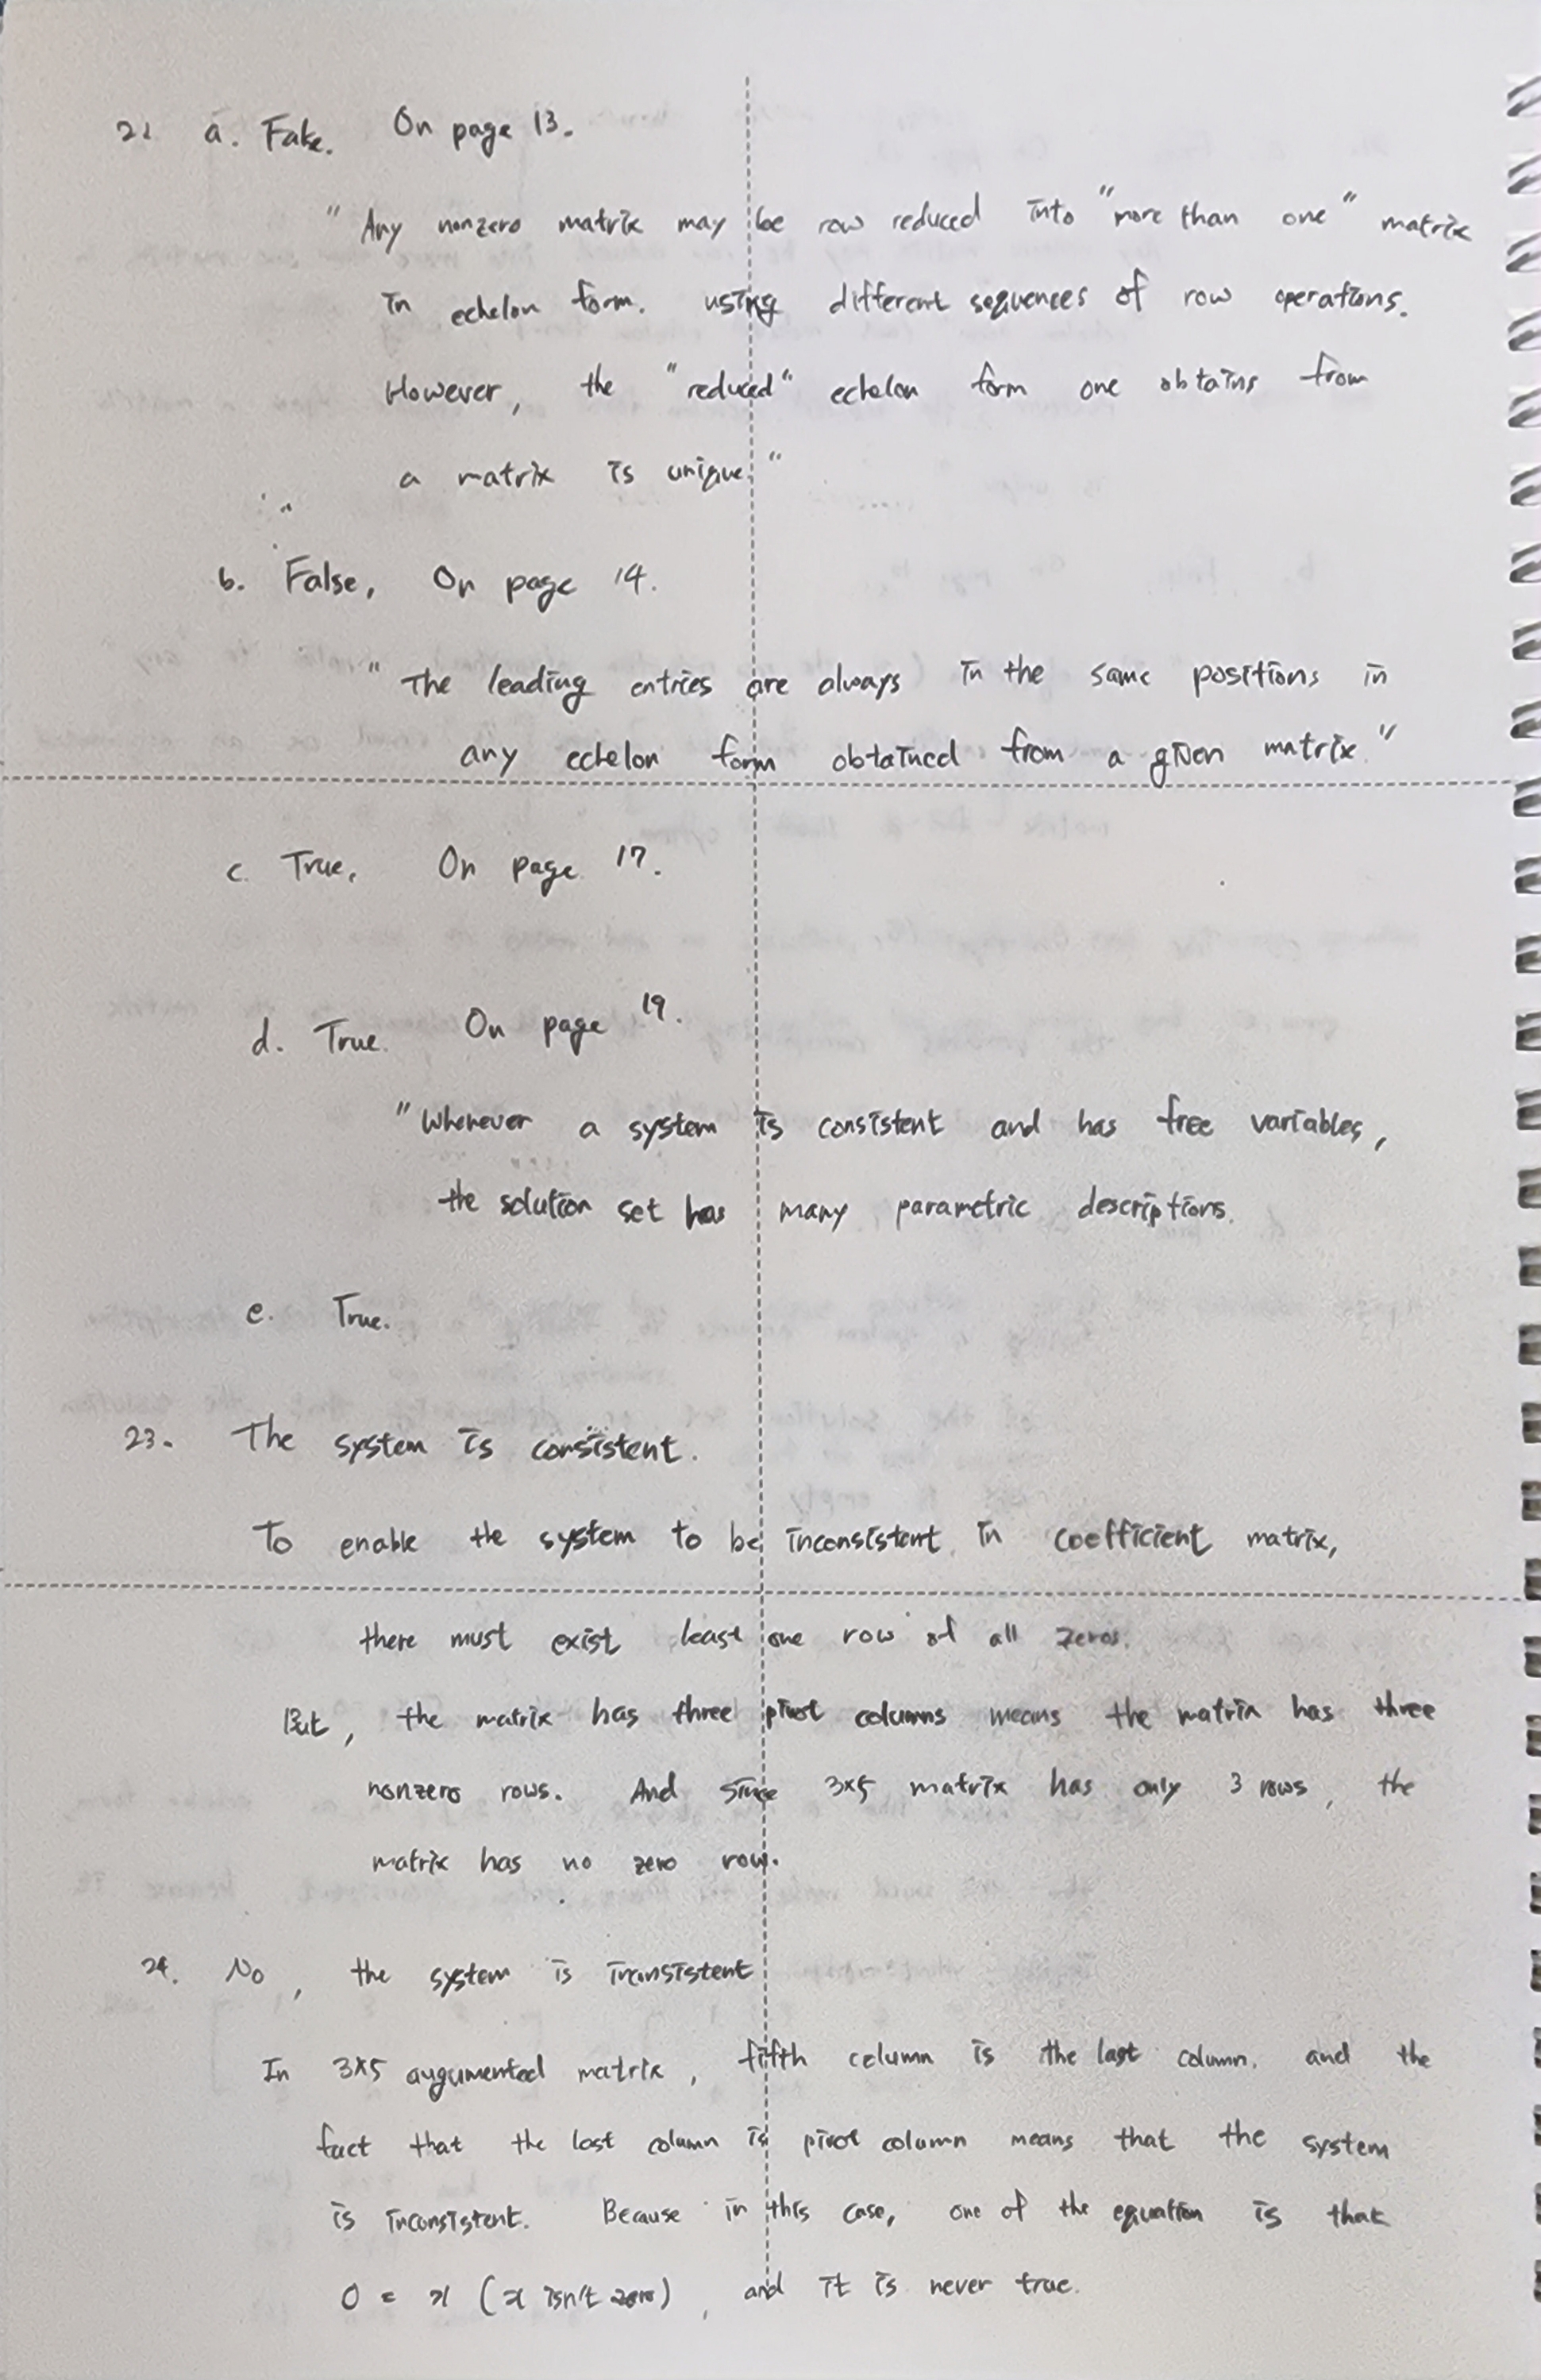 22 a. False. On page 13.
" Any nonzero matrix may be row reduced into "more than one" matrix
in echelon form. using different sequences of row operations.
However, the "reduced" echelon form one obtains from
a matrix is unique."
b. False, On page 14.
" The leading entries are always in the same positions in
any echelon form obtained from a given matrix."
c. True, On page 17.
d. True. On page 19.
"Whenever a system is consistent and has free variables,
the solution set has many parametric descriptions.
e. True.
23. The system is consistent.
To enable the system to be inconsistent in coefficient matrix,
there must exist least one row of all zeros.
But, the matrix has three pivot columns means the matrix has three
nonzero rows. And since 3×5 matrix has only 3 rows, the
matrix has no zero row.
24. No, the system is inconsistent
In 3×5 augumented matrix, fifth column is the last column. and the
fact that the last column is pivot column means that the system
is inconsistent. Because in this case, one of the equation is that
0 = x (x isn't zero), and it is never true.